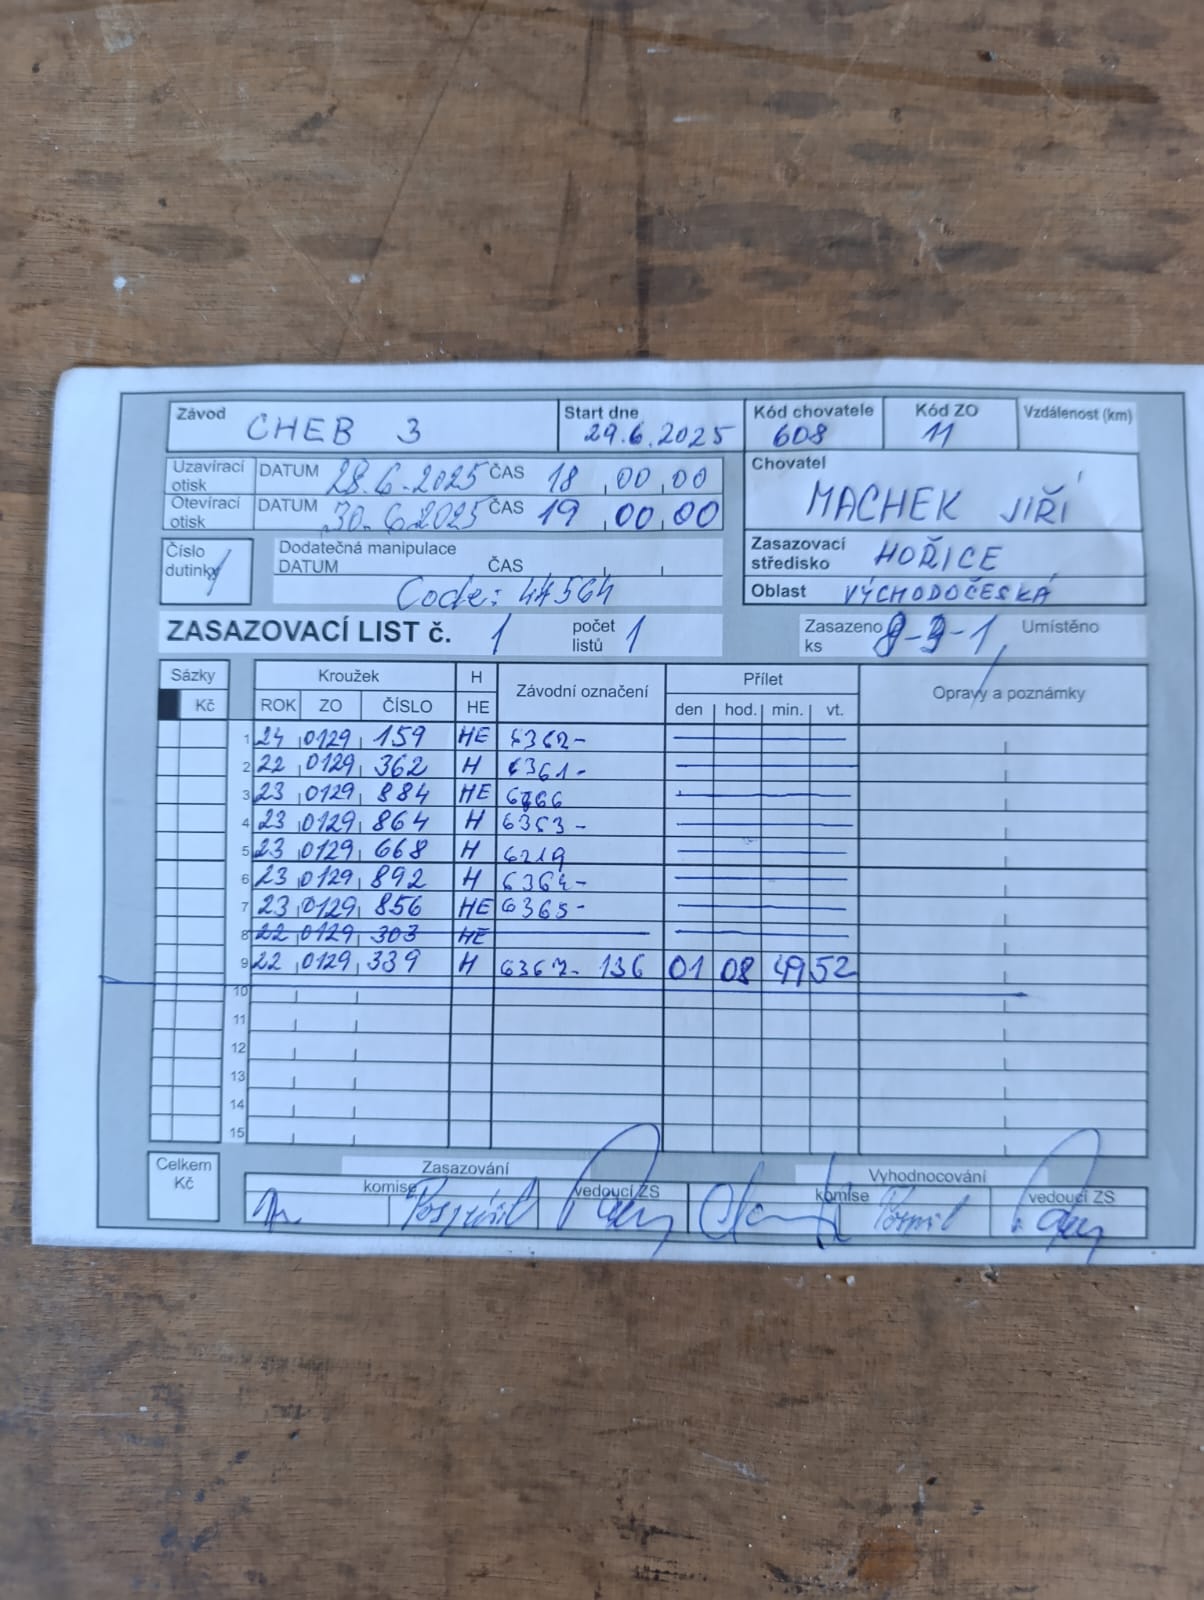 Závod CHEB 3 Start dne 29.6.2025 Kód chovatele 608 Kód ZO 11 Vzdálenost (km)
Uzavírací otisk DATUM 28.6.2025 ČAS 18 00 00
Otevírací otisk DATUM 30.6.2025 ČAS 19 00 00
Chovatel MACHEK JIŘÍ
Číslo dutinky
Dodatečná manipulace
DATUM ČAS
Code: 44564
Zasazovací středisko HOŘICE
Oblast VÝCHODOČESKÁ
ZASAZOVACÍ LIST č. 1 počet listů 1 Zasazeno ks Umístěno
Sázky Kroužek H Závodní označení Přílet Opravy a poznámky
Kč ROK ZO ČÍSLO HE den hod. min. vt.
1 24 0129 159 HE 6362-
2 22 0129 362 H 6361-
3 23 0129 884 HE
4 23 0129 864 H 6363-
5 23 0129 668 H 6219
6 23 0129 892 H 6364-
7 23 0129 856 HE 6365-
8 22 0129 303 HE
9 22 0129 339 H 6367- 136 01 08 49 52
10
11
12
13
14
15
Celkem Kč
Zasazování Vyhodnocování
komise vedoucí ZS komise vedoucí ZS